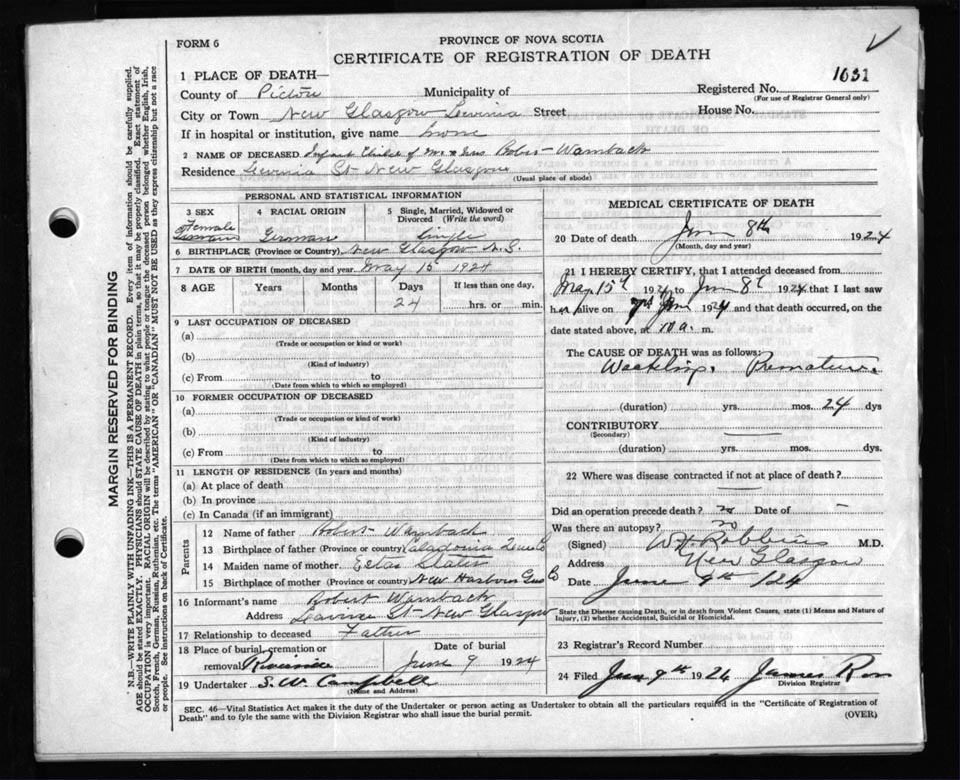 FORM 6
PROVINCE OF NOVA SCOTIA
CERTIFICATE OF REGISTRATION OF DEATH
1031
1 PLACE OF DEATH—
County of Pictou Municipality of Registered No.
(For use of Registrar General only)
City or Town New Glasgow Street House No.
If in hospital or institution, give name home
2 NAME OF DECEASED Infant Child of Mr & Mrs Wambach
Residence St New Glasgow
(Usual place of abode)
PERSONAL AND STATISTICAL INFORMATION
3 SEX 4 RACIAL ORIGIN 5 Single, Married, Widowed or Divorced (Write the word)
Female German Single
6 BIRTHPLACE (Province or Country) New Glasgow N.S.
7 DATE OF BIRTH (month, day and year) May 15 1924
8 AGE Years Months Days If less than one day,
24 hrs. or min.
9 LAST OCCUPATION OF DECEASED
(a)
(Trade or occupation or kind or work)
(b)
(Kind of industry)
(c) From to
(Date from which to which so employed)
10 FORMER OCCUPATION OF DECEASED
(a)
(Trade or occupation or kind of work)
(b)
(Kind of industry)
(c) From to
(Date from which to which so employed)
11 LENGTH OF RESIDENCE (In years and months)
(a) At place of death
(b) In province
(c) In Canada (if an immigrant)
Parents
12 Name of father Robert Wambach
13 Birthplace of father (Province or country)
14 Maiden name of mother
15 Birthplace of mother (Province or country) New Harbour Guys Co
16 Informant's name Robert Wambach
Address St New Glasgow
17 Relationship to deceased Father
18 Place of burial, cremation or removal Date of burial
Riverside June 9 1924
19 Undertaker S. W. Campbell
(Name and Address)
MEDICAL CERTIFICATE OF DEATH
20 Date of death 8th 1924
(Month, day and year)
21 I HEREBY CERTIFY, that I attended deceased from
May 15th 1924 to 8th 1924 that I last saw
alive on 7th 1924 and that death occurred, on the
date stated above, at m.
The CAUSE OF DEATH was as follows:
(duration) yrs. mos. 24 dys
CONTRIBUTORY
(Secondary)
(duration) yrs. mos. dys
22 Where was disease contracted if not at place of death?
Did an operation precede death? no Date of -
Was there an autopsy? no
(Signed) W H Robbins M.D.
Address New Glasgow
Date June 9th /24
State the Disease causing Death, or in death from Violent Causes, state (1) Means and Nature of Injury, (2) whether Accidental, Suicidal or Homicidal.
23 Registrar's Record Number
24 Filed 9th 1924 James
Division Registrar
SEC. 46—Vital Statistics Act makes it the duty of the Undertaker or person acting as Undertaker to obtain all the particulars required in the "Certificate of Registration of
Death" and to fyle the same with the Division Registrar who shall issue the burial permit. (OVER)
MARGIN RESERVED FOR BINDING
N.B.—WRITE PLAINLY WITH UNFADING INK.—THIS IS A PERMANENT RECORD. Every item of information should be carefully supplied.
AGE should be stated EXACTLY. PHYSICIANS should STATE CAUSE OF DEATH in plain terms, so that it may be properly classified. Exact statement of
OCCUPATION is very important. RACIAL ORIGIN will be described by stating to what people or tongue the deceased person belonged whether English, Irish,
Scotch, French, German, Russian, Ruthenian, etc. The terms "AMERICAN" OR "CANADIAN" MUST NOT BE USED as they express citizenship but not a race
or people. See instructions on back of Certificate.